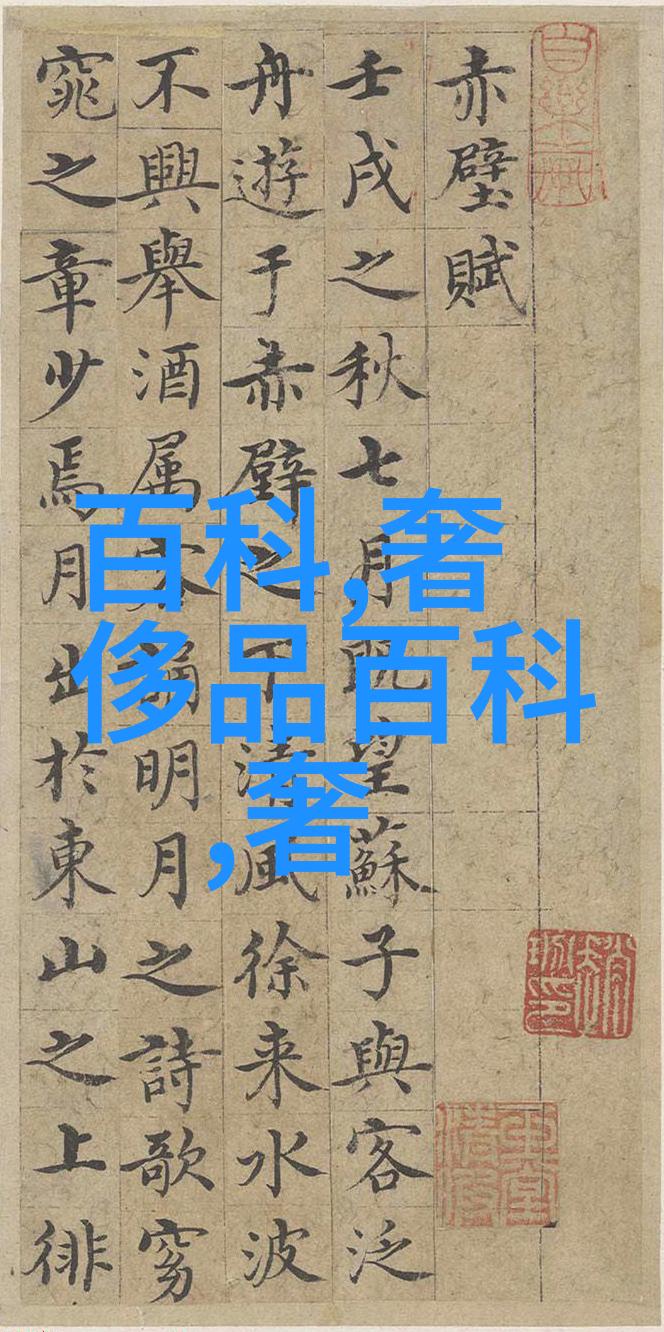 赤壁賦
壬戌之秋七月既望蘇子與客泛
舟遊于赤壁之下清風徐来水波
不興舉酒属客誦明月之詩歌窈
窕之章少焉月出於東山之上徘
百科,奢
侈品百科
,奢